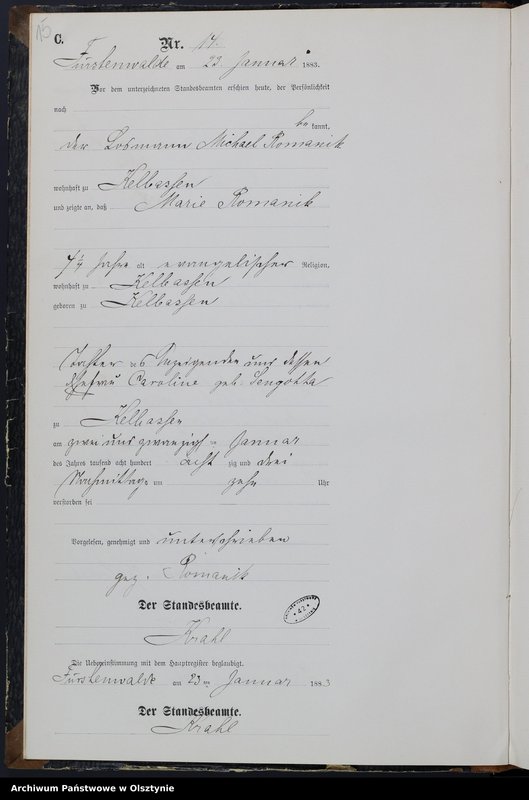 C.
Nr. 14.
Fürstenwalde am 23. Januar 1883.
Vor dem unterzeichneten Standesbeamten erschien heute, der Persönlichkeit
nach
be kannt,
der Losmann Michael Romanik
wohnhaft zu Kelbassen
und zeigte an, daß Marie Romanik
Jahre alt evangelischer Religion,
wohnhaft zu Kelbassen
geboren zu Kelbassen
Tochter des Anzeigenden und dessen
Ehefrau Caroline geb. Sengotta
zu Kelbassen
am zwei und zwanzigsten Januar
des Jahres tausend acht hundert acht zig und drei
Nachmittags um zehn Uhr
verstorben sei
Vorgelesen, genehmigt und unterschrieben
gez. Romanik
Der Standesbeamte.
Krahl
Die Uebereinstimmung mit dem Hauptregister beglaubigt.
Fürstenwalde am 23ten Januar 1883
Der Standesbeamte.
Krahl
Archiwum Państwowe w Olsztynie